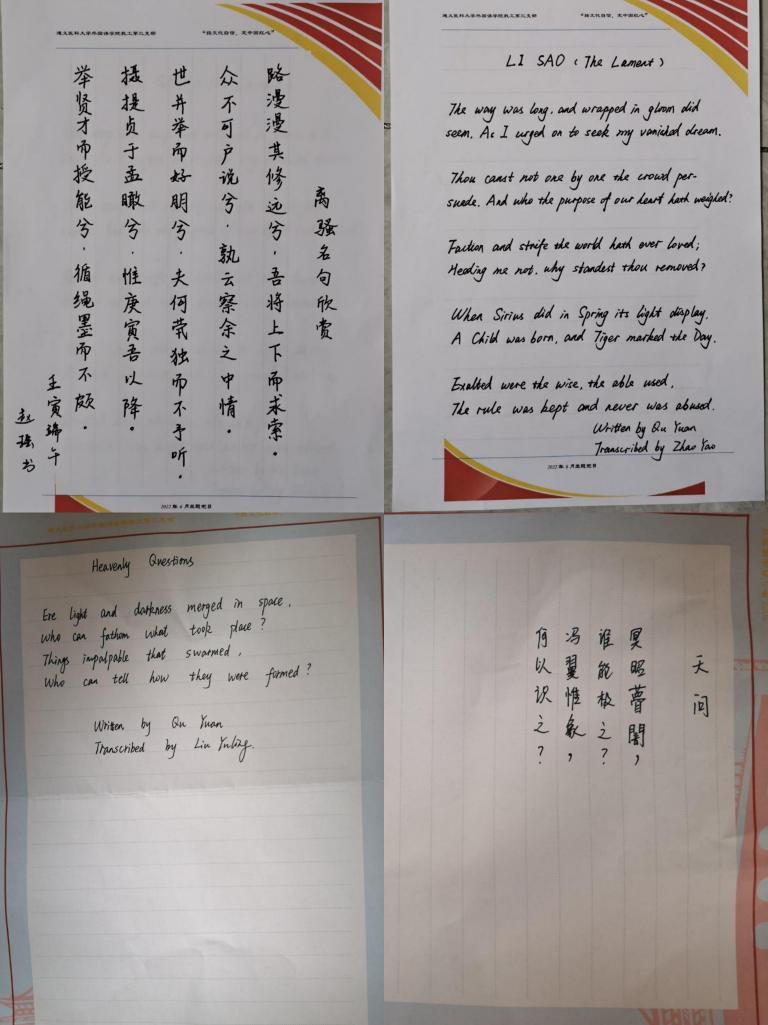 遵义医科大学外国语学院教工第二支部
离骚名句欣赏
路漫漫其修远兮，吾将上下而求索。
众不可户说兮，孰云察余之中情。
世并举而好朋兮，夫何茕独而不予听。
摄提贞于孟瞰兮，惟庚寅吾以降。
举贤才而授能兮，循绳墨而不颇。
壬寅端午
赵瑶书
2022 年 6 月主题栏目
遵义医科大学外国语学院教工第二支部
LI SAO (The Lament)
The way was long, and wrapped in gloom did
seem, As I urged on to seek my vanished dream.
Thou canst not one by one the crowd per-
suade, And who the purpose of our heart hath weighed?
Faction and strife the world hath ever loved;
Heading me not, why standest thou removed?
When Sirius did in Spring its light display,
A Child was born, and Tiger marked the Day.
Exalted were the wise, the able used,
The rule was kept and never was abused.
Written by Qu Yuan
Transcribed by Zhao Yao
2022 年 6 月主题栏目
Heavenly Questions
Ere light and darkness merged in space,
Who can fathom what took place?
Things impalpable that swarmed,
Who can tell how they were formed?
Written by Qu Yuan
Transcribed by Liu Yuling.
天问
冥昭瞢闇，
谁能极之？
冯翼惟象，
何以识之？